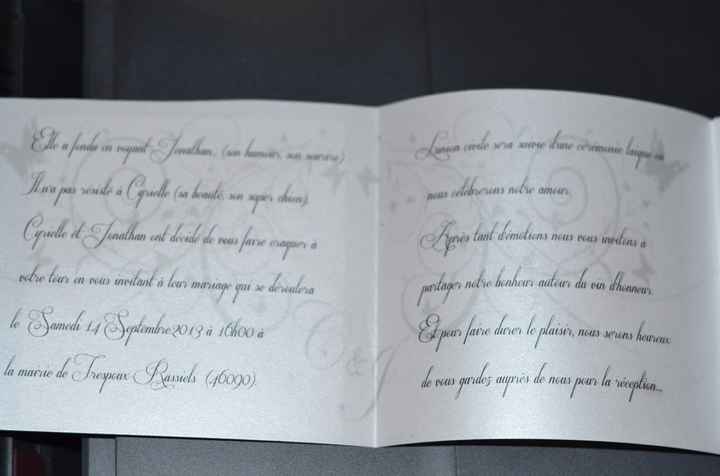 Elle a fondu en voyant Jonathan, (son humour, son sourire)
Il n'a pas résisté à Cyrielle (sa beauté, son super chien).
Cyrielle et Jonathan ont décidé de vous faire craquer à
votre tour en vous invitant à leur mariage qui se déroulera
le Samedi 14 Septembre 2013 à 16h00 à
la mairie de Trespoux Rassiels (46090).
C & J
L'union civile sera suivie d'une cérémonie laïque où
nous célébrerons notre amour.
Après tant d'émotions nous vous invitons à
partager notre bonheur autour du vin d'honneur.
Et pour faire durer le plaisir, nous serons heureux
de vous garder auprès de nous pour la réception...